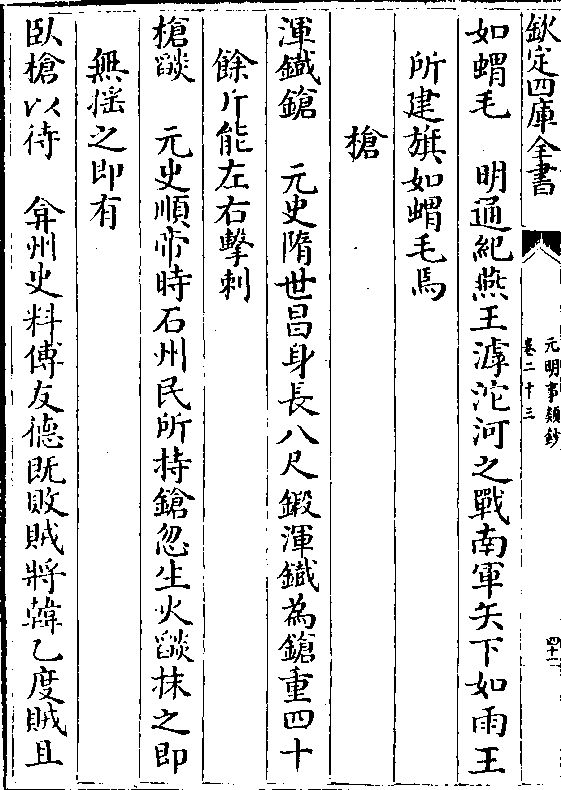 欽定四庫全書
元明事類鈔
卷二十三
四十一
如蝟毛　明通紀燕王滹沱河之戰南軍矢下如雨王
所建旗如蝟毛焉
槍
渾鐵鎗　元史隋世昌身長八尺鍛渾鐵為鎗重四十
餘斤能左右擊刺
槍燄　元史順帝時石州民所持鎗忽生火燄抹之即
無揺之即有
臥槍以待　弇州史料傅友德既敗賊將韓乙度賊且